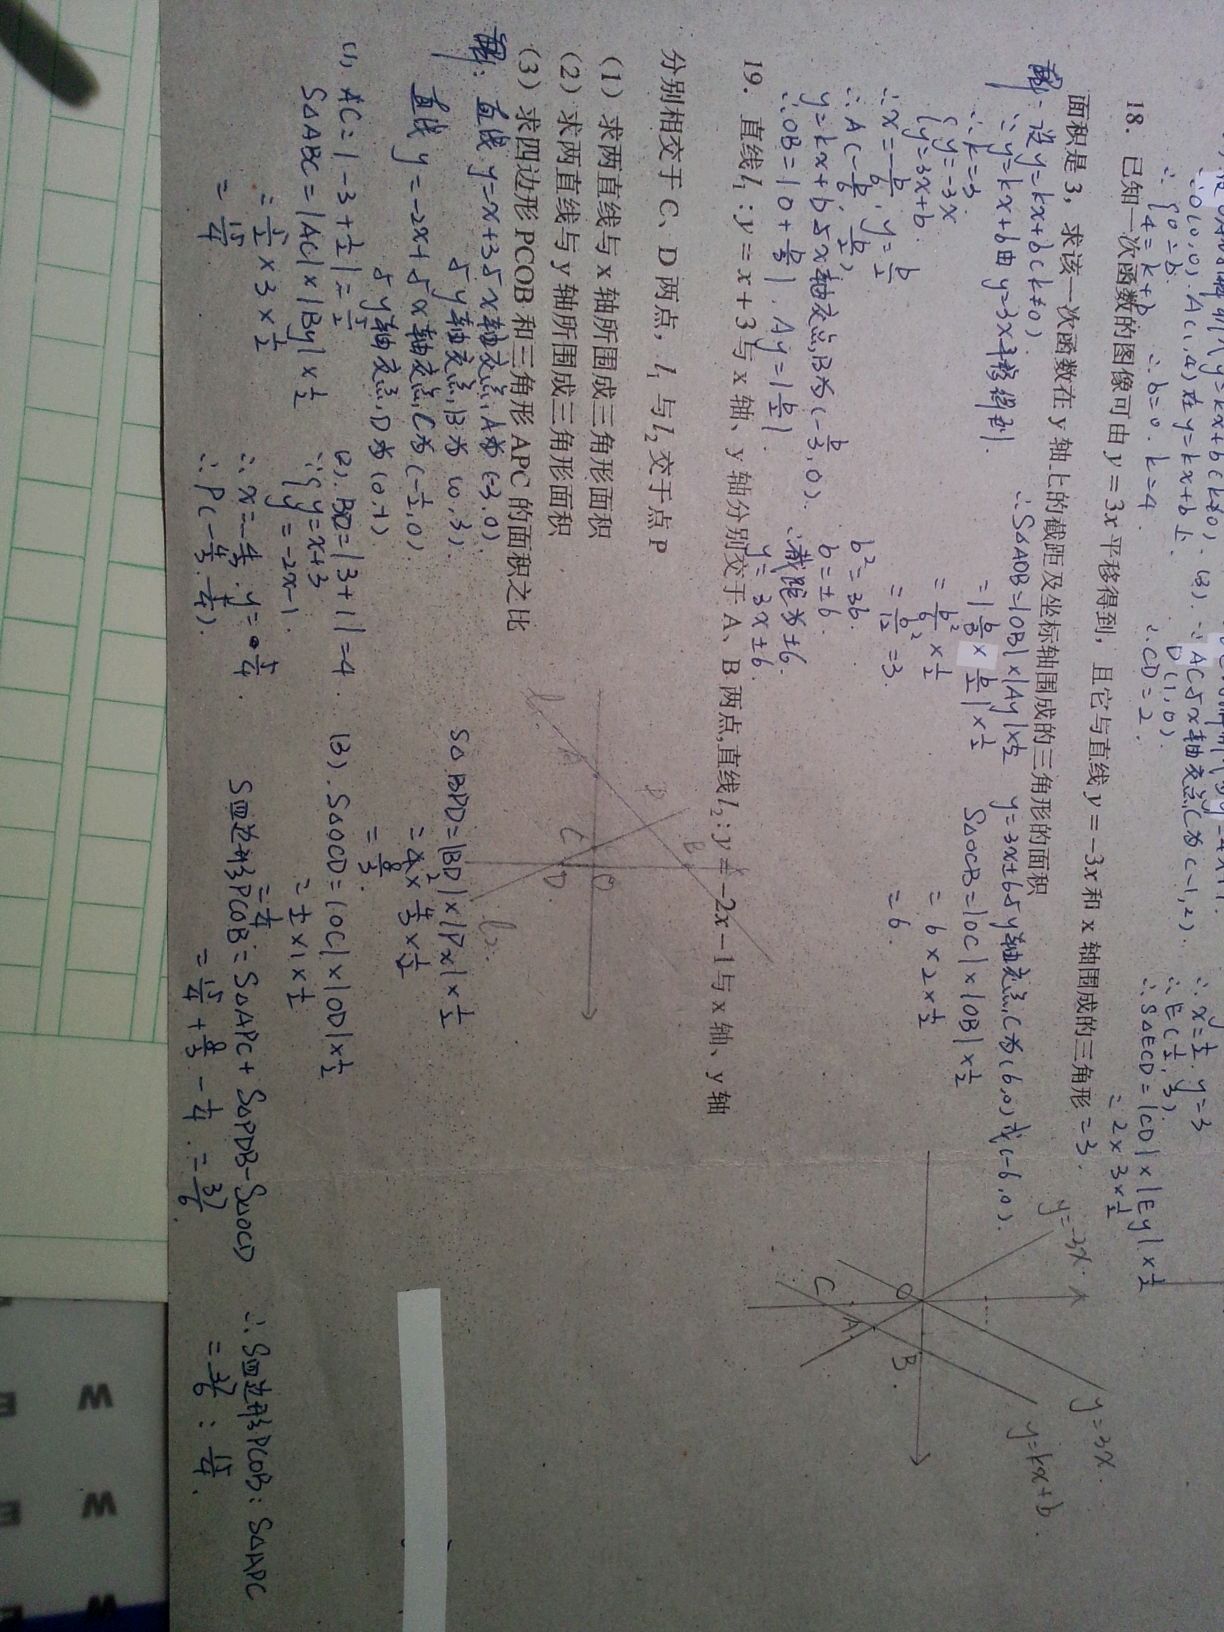 18. 已知一次函数的图像可由 y = 3x 平移得到，且它与直线 y = -3x 和 x 轴围成的三角形 = 3.
面积是 3，求该一次函数在 y 轴上的截距及坐标轴围成的三角形的面积
解：设 y=kx+b(k≠0).
∵y=kx+b由 y=3x平移得到.
∴k=3.
{y=-3x
{y=3x+b.
∴x=-b/6, y=b/2
∴A(-b/6, b/2)
y=kx+b与x轴交点B为(-b/3,0).
∴OB=|0+b/3|. Ay=|b/2|.
∴S△AOB=|OB|×|Ay|×1/2
=|b/3×b/2|×1/2
=b²/6×1/2
=b²/12=3.
b²=36.
b=±6.
∴截距为±6.
y=3x±6.
y=3x±6与y轴交点C为(6,0)或(-6,0).
S△OCB=|OC|×|OB|×1/2
=6×2×1/2
=6.
y=-3x
y=3x.
y=kx+b.
O
C
A
B
19. 直线 l₁ : y = x + 3 与 x 轴、y 轴分别交于 A、B 两点,直线 l₂ : y = -2x - 1 与 x 轴、y 轴
分别相交于 C、D 两点，l₁ 与 l₂ 交于点 P
(1) 求两直线与 x 轴所围成三角形面积
(2) 求两直线与 y 轴所围成三角形面积
(3) 求四边形 PCOB 和三角形 APC 的面积之比
解：直线 y=x+3与x轴交点A为(-3,0).
与y轴交点B为(0,3).
直线 y=-2x+与x轴交点C为(-1/2,0)
与y轴交点D为(0,-1)
(1). AC=|-3+1/2|=5/2
S△ABC=|AC|×|By|×1/2
=5/2×3×1/2
=15/4
(2). BD=|3+1|=4.
∵{y=x+3
{y=-2x-1.
∴x=-4/3. y=5/4.
∴P(-4/3, 5/4).
S△BPD=|BD|×|Px|×1/2
=4×4/3×1/2
=8/3.
(3). S△OCD=|OC|×|OD|×1/2
=1/2×1×1/2
=1/4
S四边形PCOB=S△APC+S△PDB-S△OCD
=15/4+8/3-1/4.=37/6.
∴S四边形PCOB:S△APC
=37/6:15/4.
l₁
A
P
B
C
D
O
l₂.